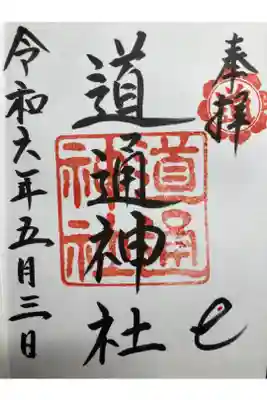 奉拝
道通神社
道通神社
令和六年五月三日